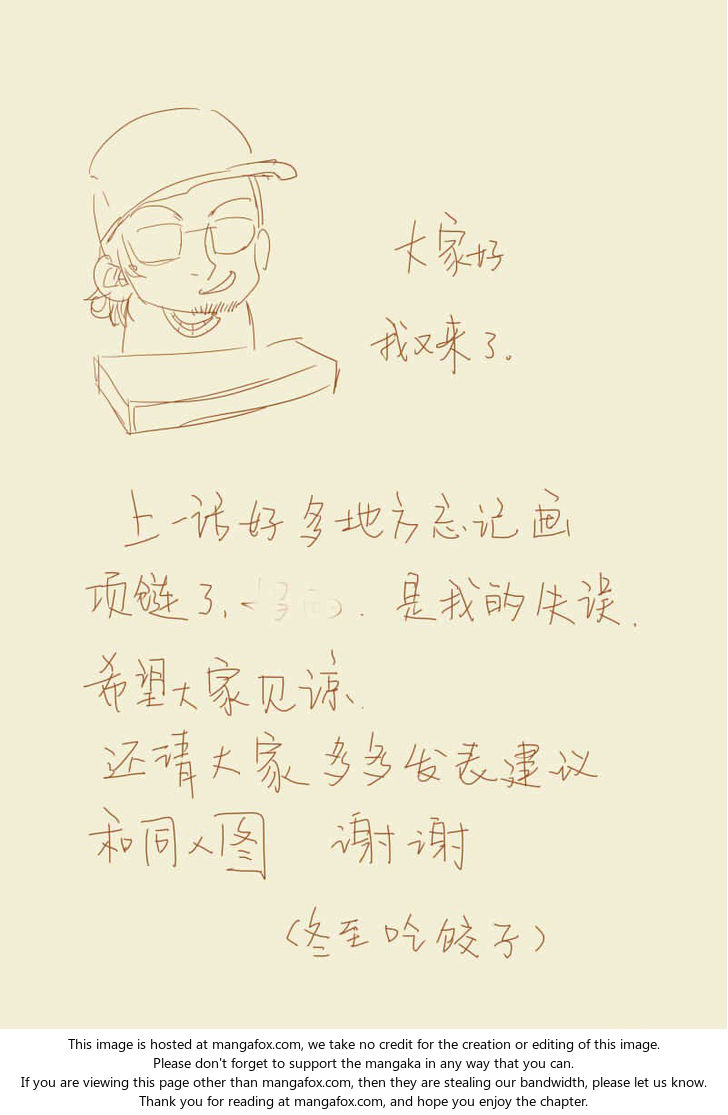 大家好
我又来了。
上一话好多地方忘记画
项链了、是我的失误.
希望大家见谅、
还请大家多多发表建议
和同人图 谢谢
(冬至吃饺子)
This image is hosted at mangafox.com, we take no credit for the creation or editing of this image.
Please don't forget to support the mangaka in any way that you can.
If you are viewing this page other than mangafox.com, then they are stealing our bandwidth, please let us know.
Thank you for reading at mangafox.com, and hope you enjoy the chapter.